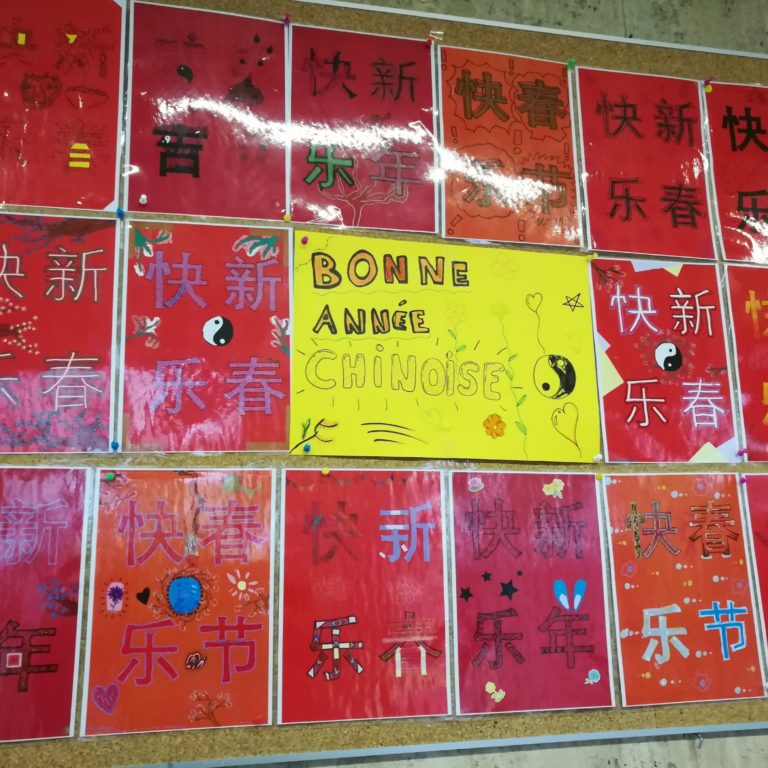 吉
快新
乐年
快春
乐节
快新
乐春
快
乐
快新
乐春
快新
乐春
BONNE
ANNÉE
CHINOISE
快新
乐春
新
年
快春
乐节
快新
乐春
快新
乐年
快春
乐节